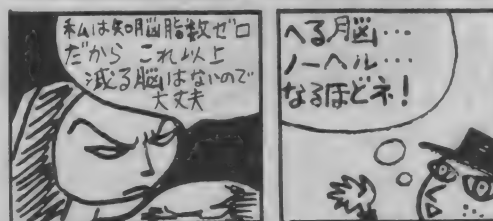 私は知脳脂数ゼロ
だから これ以上
減る脳はないので
大丈夫
へる脳…
ノーヘル…
なるほどネ!